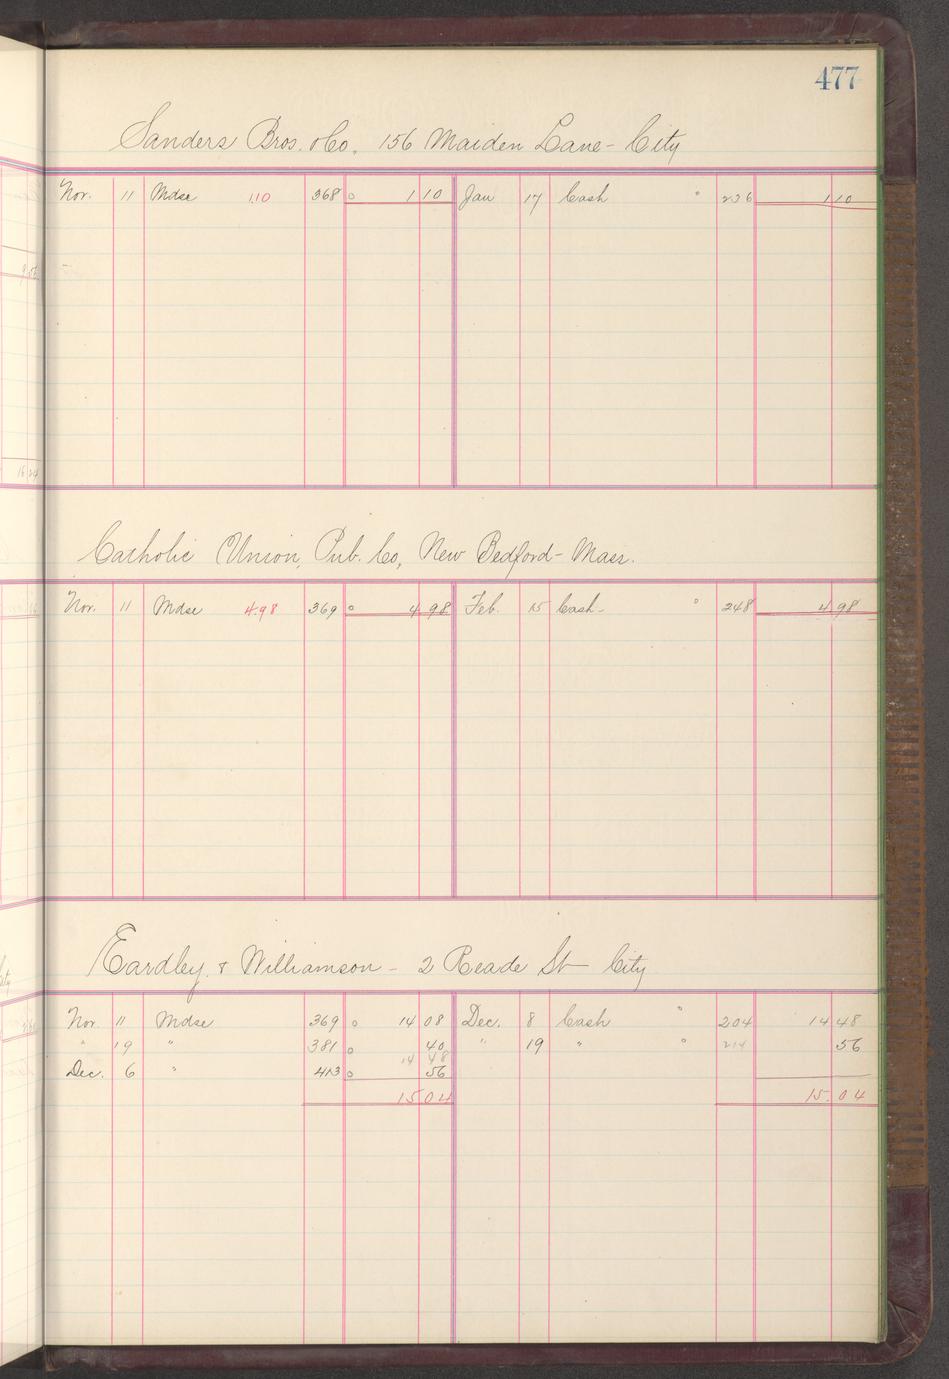 477
Sanders Bros. & Co. 156 Maiden Lane - City
Nov. 11 Mdse 1.10 368 o 1 10 Jan 17 Cash " 236 1 10
Catholic Union, Pub. Co, New Bedford - Mass.
Nov. 11 Mdse 4.98 369 o 4 98 Feb. 15 Cash - " 248 4 98
Eardley & Williamson - 2 Reade St - City
Nov. 11 Mdse 369 o 14 08 Dec. 8 Cash " 204 14 48
" 19 " 381 o 40 " 19 " " 214 56
14 48
Dec. 6 " 413 o 56
15 04 15. 04